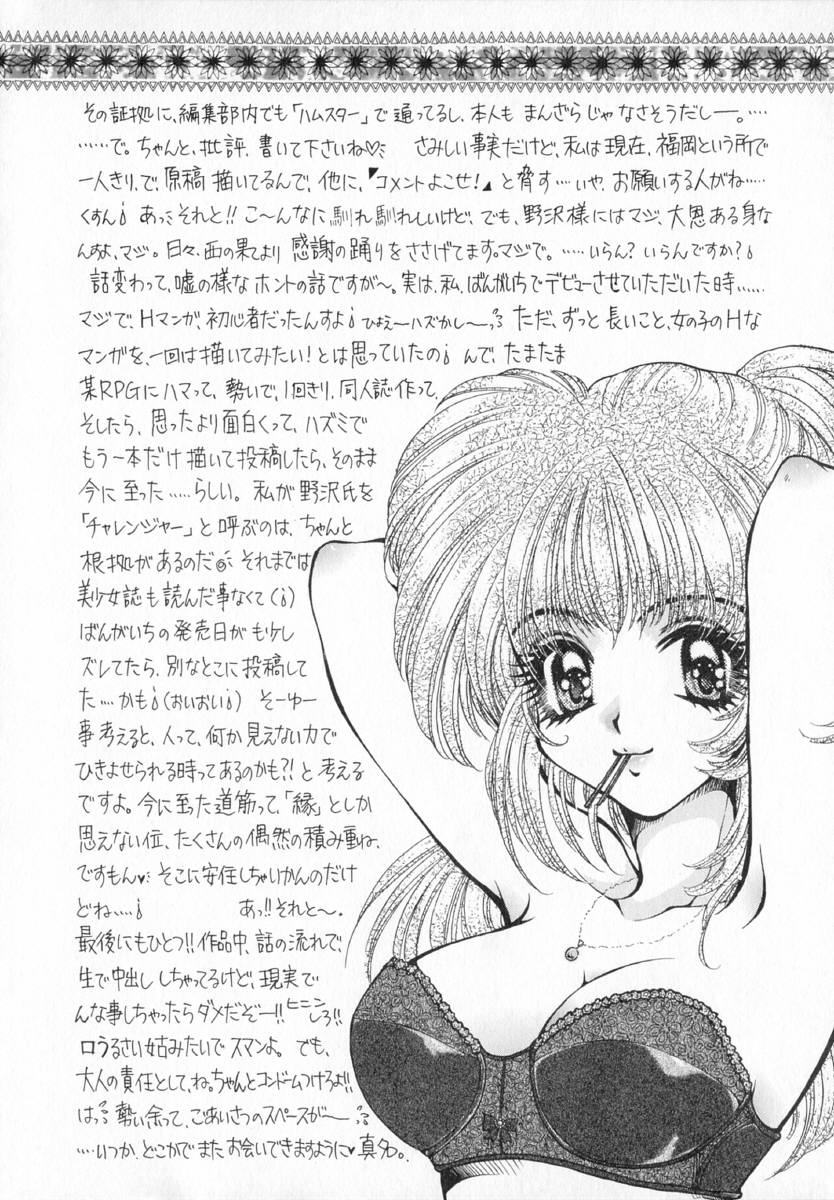 その証拠に、編集部内でも「ハムスター」で通ってるし、本人もまんざらじゃなさそうだしー。……
……で。ちゃんと、批評、書いて下さいね♡ さみしい事実だけど、私は現在、福岡という所で
一人きり、で、原稿描いてるんで、他に、『コメントよこせ!』と脅す…いや、お願いする人がね……
くすん あっ、それと!! こ〜んなに馴れ馴れしいけど、でも、野沢様にはマジ、大恩ある身な
んすよ、マジ。日々、西の果てより感謝の踊りをささげてます。マジで。……いらん?いらんですか?
話変わって、嘘の様なホントの話ですが〜。実は、私、ばんがいちでデビューさせていただいた時……
マジで、Hマンガ、初心者だったんすよ ひょえーハズかしー ただ、ずっと長いこと、女の子のHな
マンガを、一回は描いてみたい!とは思っていたの んで、たまたま
某RPGにハマって、勢いで、1回きり、同人誌作って、
そしたら、思ったより面白くって、ハズミで
もう一本だけ描いて投稿したら、そのまま
今に至った……らしい。私が野沢氏を
「チャレンジャー」と呼ぶのは、ちゃんと
根拠があるのだ それまでは
美少女誌も読んだ事なくて
ばんがいちの発売日がもケし
ズレてたら、別なとこに投稿して
た…かも(おいおい) そーゆー
事考えると、人って、何か見えない力で
ひきよせられる時ってあるのかも?!と考える
ですよ。今に至った道筋って、「縁」としか
思えない位、たくさんの偶然の積み重ね、
ですもん♥ そこに安住しちゃいかんのだけ
どね…. あっ!!それと〜。
最後にもひとつ!!作品中、話の流れで、
生で中出ししちゃってるけど、現実で
んな事しちゃったらダメだぞー!!ヒニンしろ!!
口うるさい姑みたいでスマンよ。でも、
大人の責任として、ね。ちゃんとコンドームつけろよ!!
はっ 勢い余って、ごあいさつのスペースが〜
….いつか、どこかでまたお会いできますように♥真名。